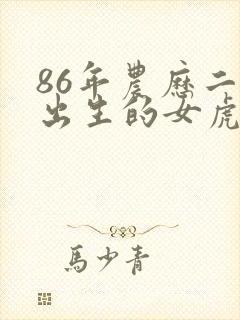 86年農歷二
出生的女虎
馬少青